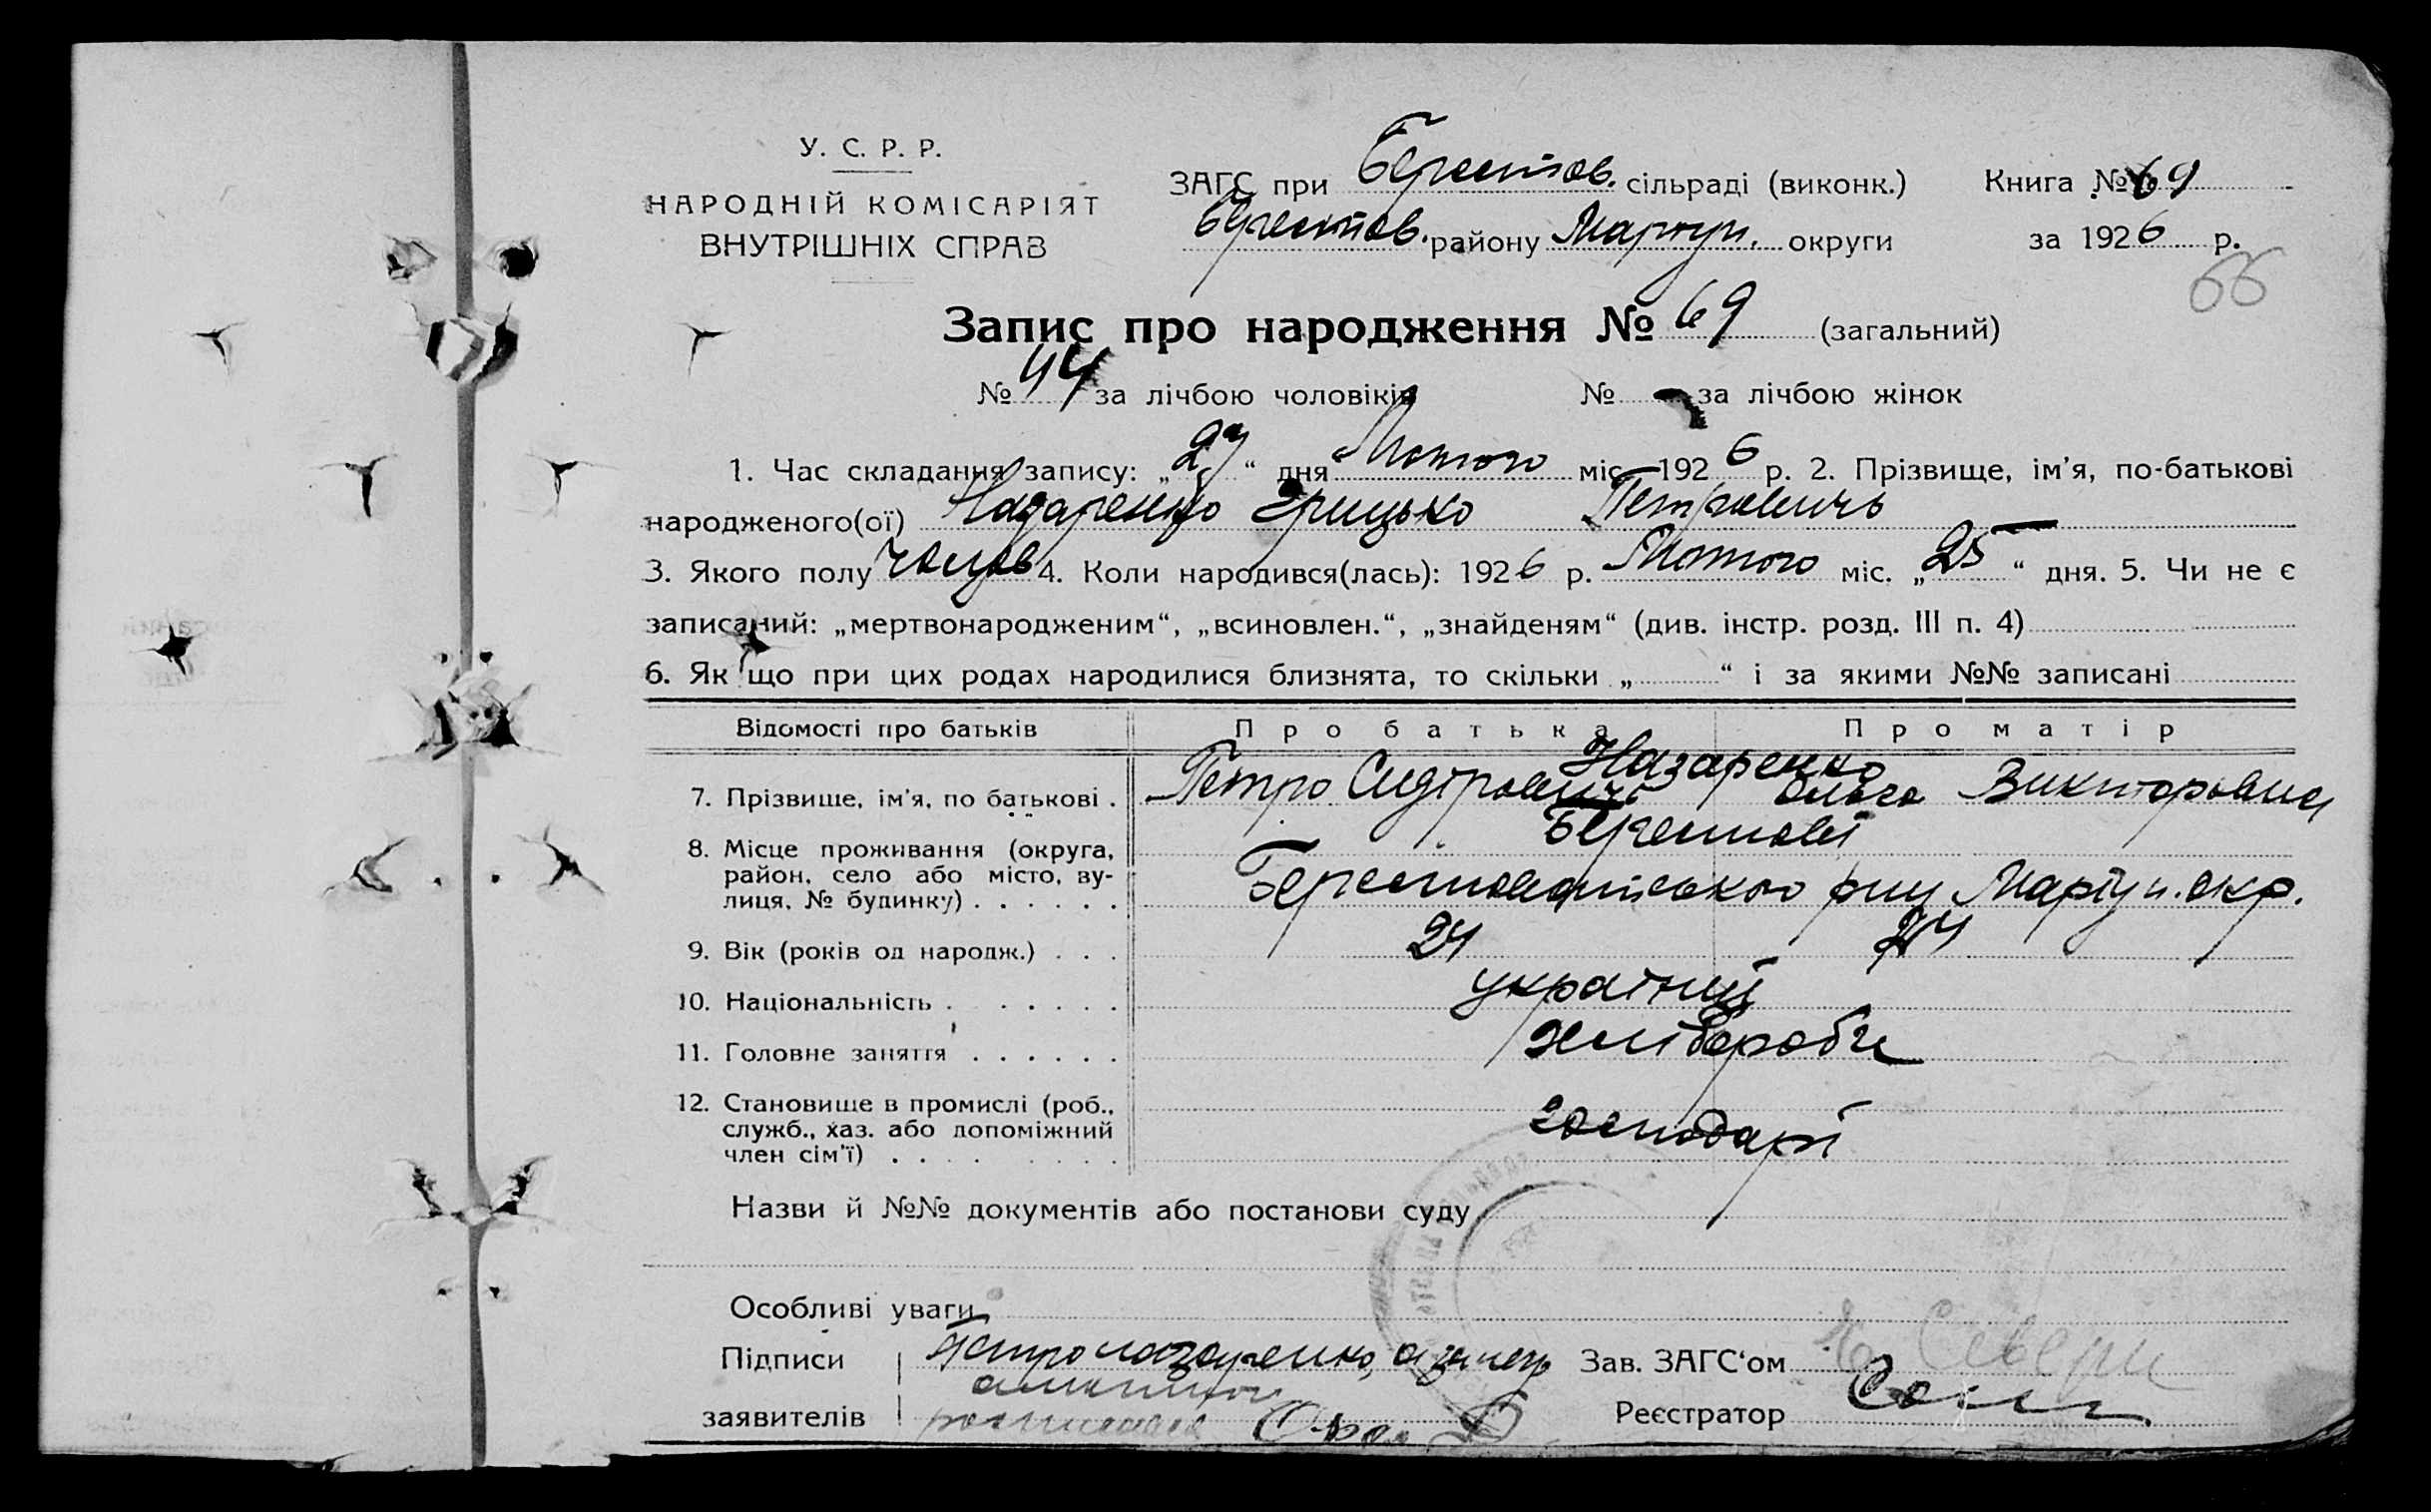 У. С. Р. Р.
НАРОДНІЙ КОМІСАРІЯТ
ВНУТРІШНІХ СПРАВ
ЗАГС при Берестов. сільраді (виконк.)
Берестов. району Маріуп. округи
Книга № 69
за 1926 р.
66
Запис про народження № 69 (загальний)
№ 44 за лічбою чоловіків № - за лічбою жінок
1. Час складання запису: „27“ дня Лютого міс. 1926 р. 2. Прізвище, ім'я, по-батькові
народженого(ої) Назаренко Грицько Петровичь
3. Якого полу чолов 4. Коли народився(лась): 1926 р. Лютого міс. „25“ дня. 5. Чи не є
записаний: „мертвонародженим“, „всиновлен.“, „знайденям“ (див. інстр. розд. III п. 4)
6. Як що при цих родах народилися близнята, то скільки „ “ і за якими №№ записані
Відомості про батьків Про батька Про матір
Назаренко
7. Прізвище, ім'я, по батькові . Петро Сидірович Ольга Викторовна
8. Місце проживання (округа,
район, село або місто, ву-
лиця, № будинку) . . . . . .
Берестової
Берестоватського рну Маріуп. окр.
9. Вік (років од народж.) . . . 24 24
10. Національність . . . . . . українці
11. Головне заняття . . . . . . хлібороби
12. Становище в промислі (роб.,
служб., хаз. або допоміжний
член сім'ї) . . . . . . . .
господарі
Назви й №№ документів або постанови суду
Особливі уваги
Підписи Петро Назаренко, а за него
заявителів
Зав. ЗАГС'ом
Реєстратор